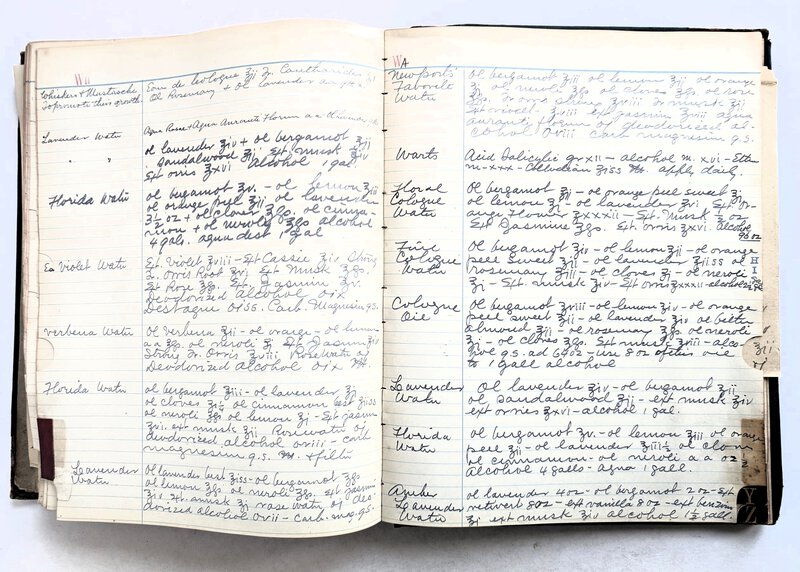 Wh
Whiskers & Mustache
To promote their growth
Eau de Cologne ℥ii Tr. Cantharides ʒii
Ol Rosemary + ol Lavender aa gtt x
Aqua Rose + Aqua Aurante Florum a a
Lavender Water
ol lavender ℥iv + ol bergamot ℥ii
" "
Sandalwood ʒii Ext. musk ℥iv
Ext orris ℥xvi Alcohol 1 gal.
Florida Water
ol bergamot ℥v. - ol lemon ℥ii
ol orange peel ℥ii ol lavender
3½ oz + ol cloves ʒss. ol cinna-
mon + ol neroly ʒss alcohol
4 gals. aqua dest 1 gal
Ex Violet Water
Ext. Violet ℥viii - Ext Cassie ℥iv
Tr. Orris Root ℥vi Ext Musk ℥ss.
Ext Rose ℥ss. Ext. Jasmin ℥v
Deodorized Alcohol oix
Dest aque oiss. Carb. Magnesium q.s.
Verbena Water
Ol verbena ℥ii - ol orange - ol lemon
a a ℥ss. ol neroli ʒi Ext Jasmin ℥iv
Strong Tr. Orris ℥viii Rosewater oi
Deodorized Alcohol oix M.
Florida Water
ol bergamot ℥iii - ol lavender ℥i
ol cloves ʒi½ ol cinnamon best ʒiiss
ol neroli ʒss ol lemon ℥i - Ext jasmin
℥vi. ext musk ℥ii Rosewater oi
deodorized alcohol oviii - carb
magnesium q.s. M. + filter
Lavender
Water
Ol lavender best ℥iss - ol bergamot ℥ss
ol lemon ℥ss ol neroli ʒss. Ext Jasmin
℥iv Ext. musk ℥i rose water oi deo-
dorized alcohol ovii - Carb. mag. q.s.
WA
Newport's
Favorite
Water
ol bergamot ℥ii ol lemon ℥ii ol orange
℥i ol neroli ʒii ol cloves ʒss ol rose
aurante florum deodorized al-
cohol oviii carb magnesium q.s.
Warts
Acid Salicylic gr xii - alcohol m. xvi - Ether
m-xxx - Collodion ʒiss M. apply daily.
Floral
Cologne
Water
ol bergamot ℥i - ol orange peel sweet ℥i
ol lemon ℥i - ol lavender ʒvi Ext. Or-
ange Flower ℥xxxii - Ext. Musk ½ oz
Ext Jasmine ℥ss. Ext. orris ℥xvi. Alcohol
96 oz
Fine
Cologne
Water
ol bergamot ℥iv - ol lemon ℥ii - ol orange
peel sweet ℥ii - ol lavender ℥iiss ol
rosemary ʒiii - ol cloves ʒi - ol neroli
ʒi - Ext. musk ℥iv - Ext orris ℥xxxii - alcohol
Cologne
Oil
ol bergamot ℥viii - ol lemon ℥iv - ol orange
peel sweet ℥ii - ol lavender ℥iv ol bitter
almond ʒii - ol rosemary ℥ss ol neroli
ʒi - ol cloves ℥ss. Ext musk ℥iii - alco-
hol q.s. ad 64 oz - use 8 oz of this oil
to 1 gall alcohol
Lavender
Water
Ol lavender ℥iv - ol bergamot ℥ii
ol sandalwood ʒii - ext musk ℥iv
ext orris ℥xvi - alcohol 1 gal.
Florida
Water
ol bergamot ℥v. - ol lemon ℥ii ol orange
peel ℥ii - ol lavender ℥iii½ ol cloves
ol cinnamon - ol neroli a a oz ½
Alcohol 4 galls - aqua 1 gall.
Amber
Lavender
Water
ol lavender 4 oz - ol bergamot 2 oz - Ext
vetivert 8 oz - ext vanilla 8 oz - ext benzoin
℥i ext musk ℥iv alcohol 1½ gall.
H
I
S
℥ii
Y
Z